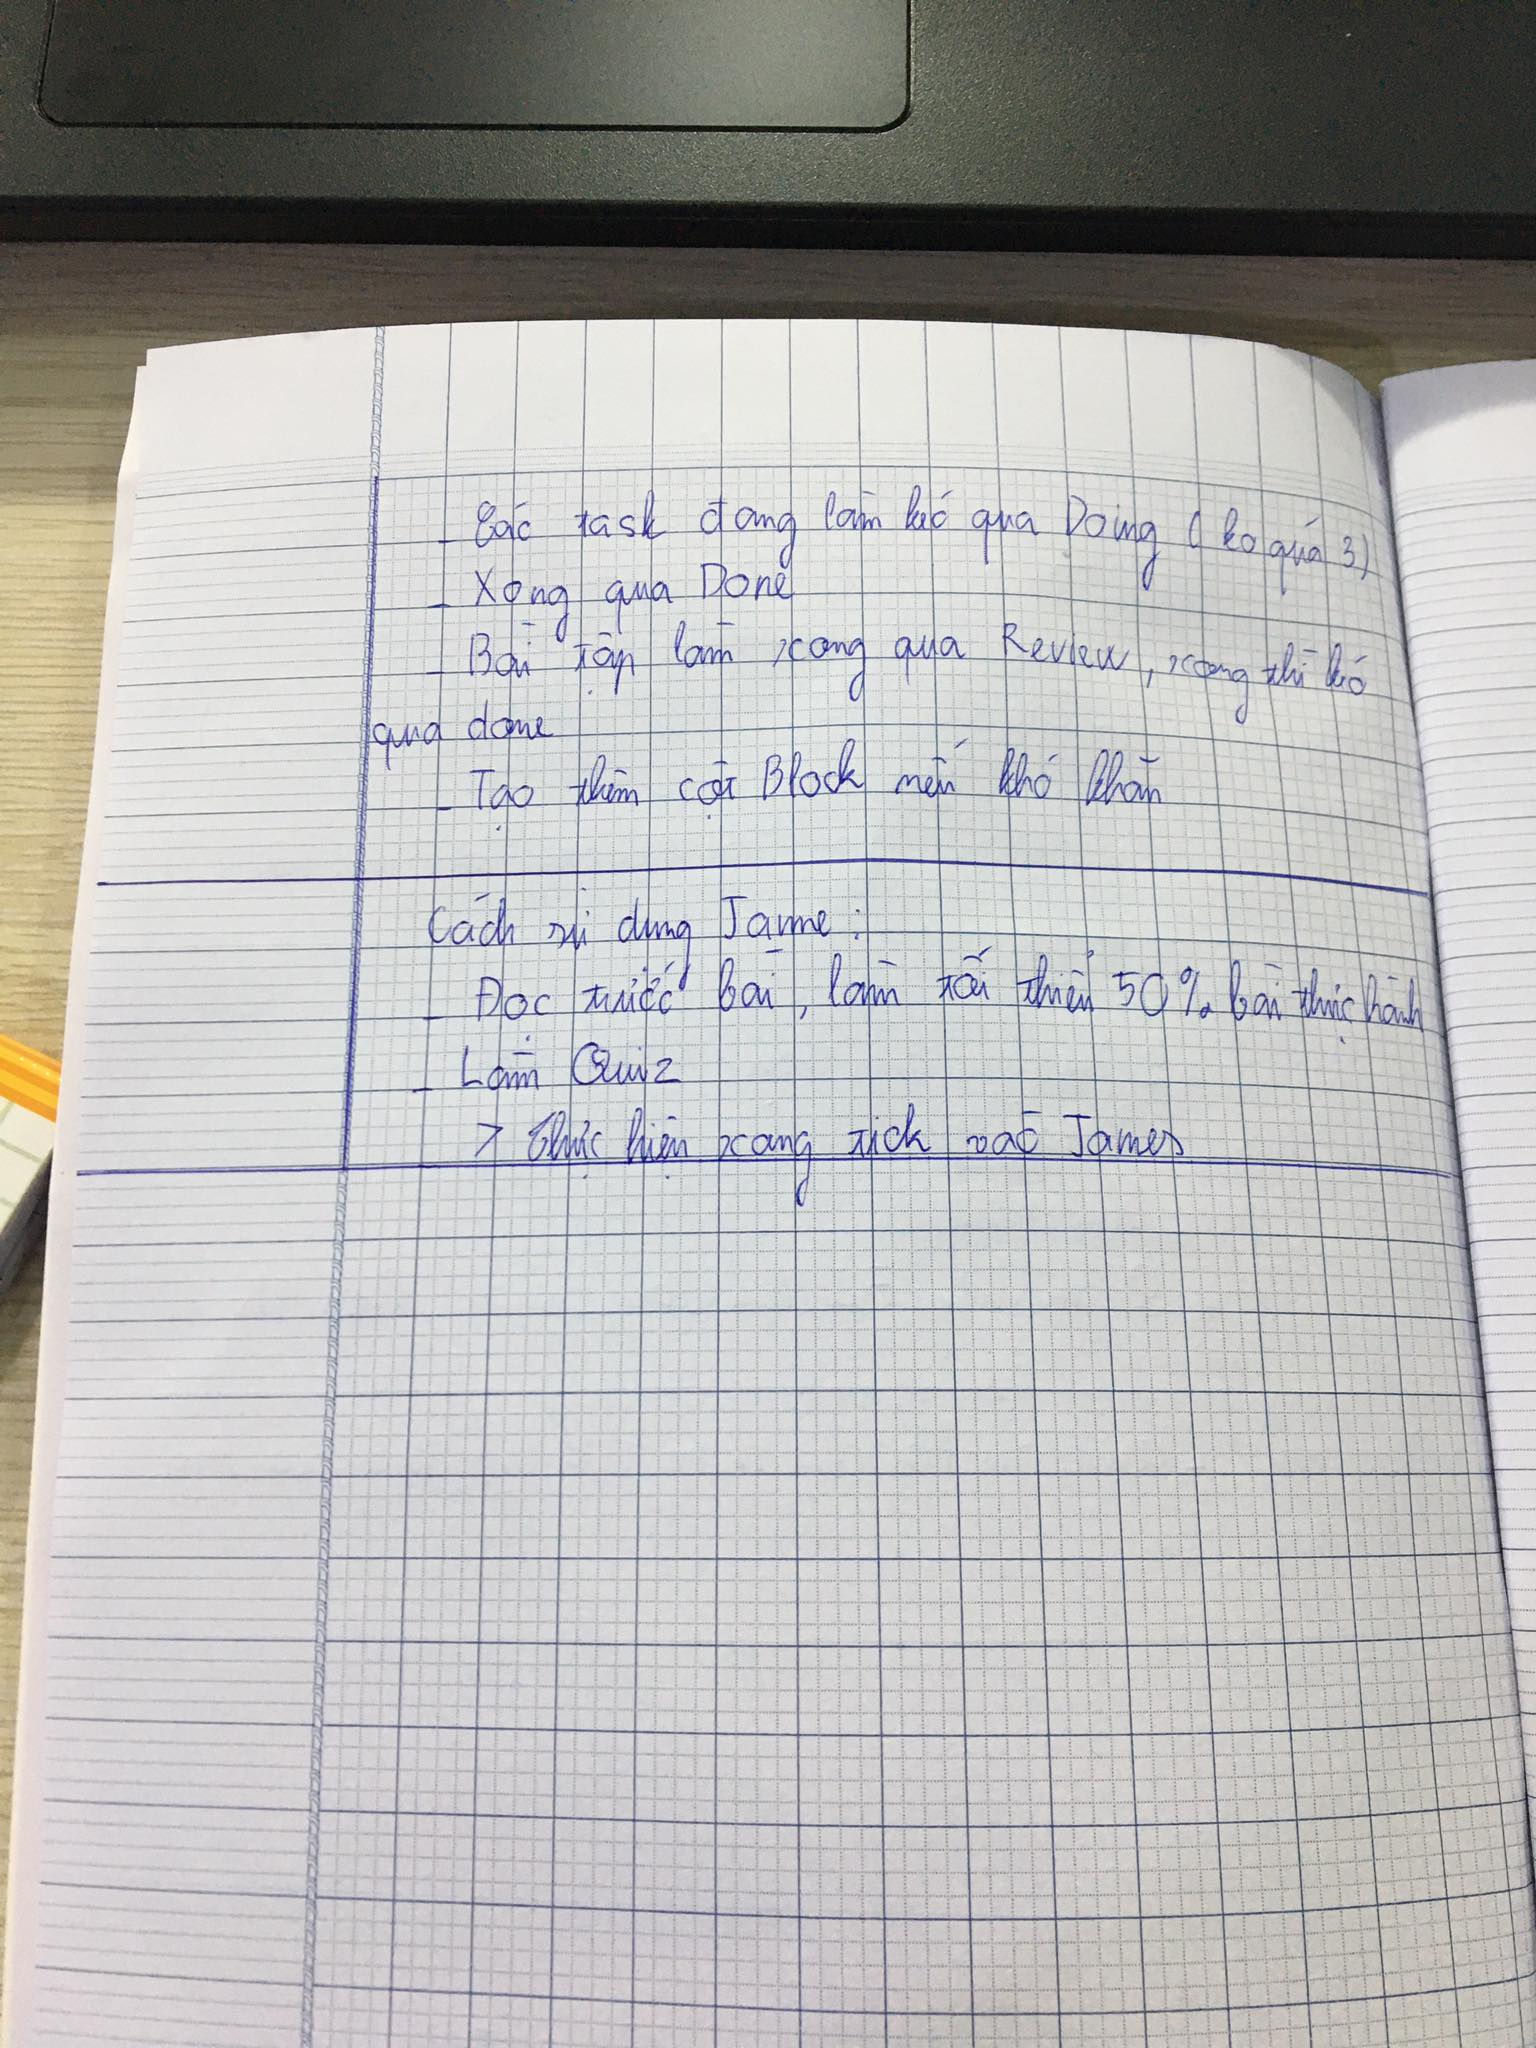 - Các task đang làm kéo qua Doing ( ko quá 3)
- Xong qua Done
- Bài tập làm xong qua Review, xong thì kéo
qua done
- Tạo thêm cột Block nếu khó khăn
Cách sử dụng Jame:
- Đọc trước bài, làm tối thiểu 50% bài thực hành
- Làm Quiz
> Thực hiện xong tick vào James